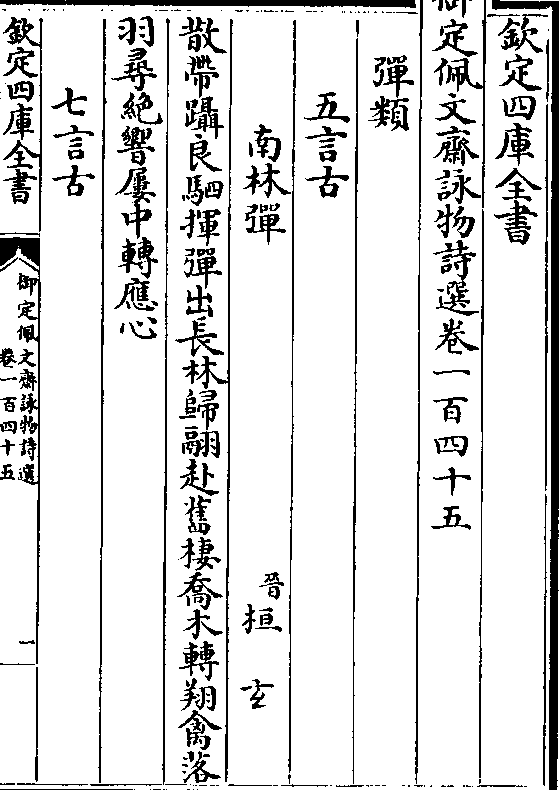 欽定四庫全書
御定佩文齋詠物詩選卷一百四十五
彈類
五言古
南林彈 晉桓玄
散帶躡良駟揮彈出長林歸翮赴舊棲喬木轉翔禽落
羽尋絶響屢中轉應心
七言古
欽定四庫全書
御定佩文齋詠物詩選
卷一百四十五
一